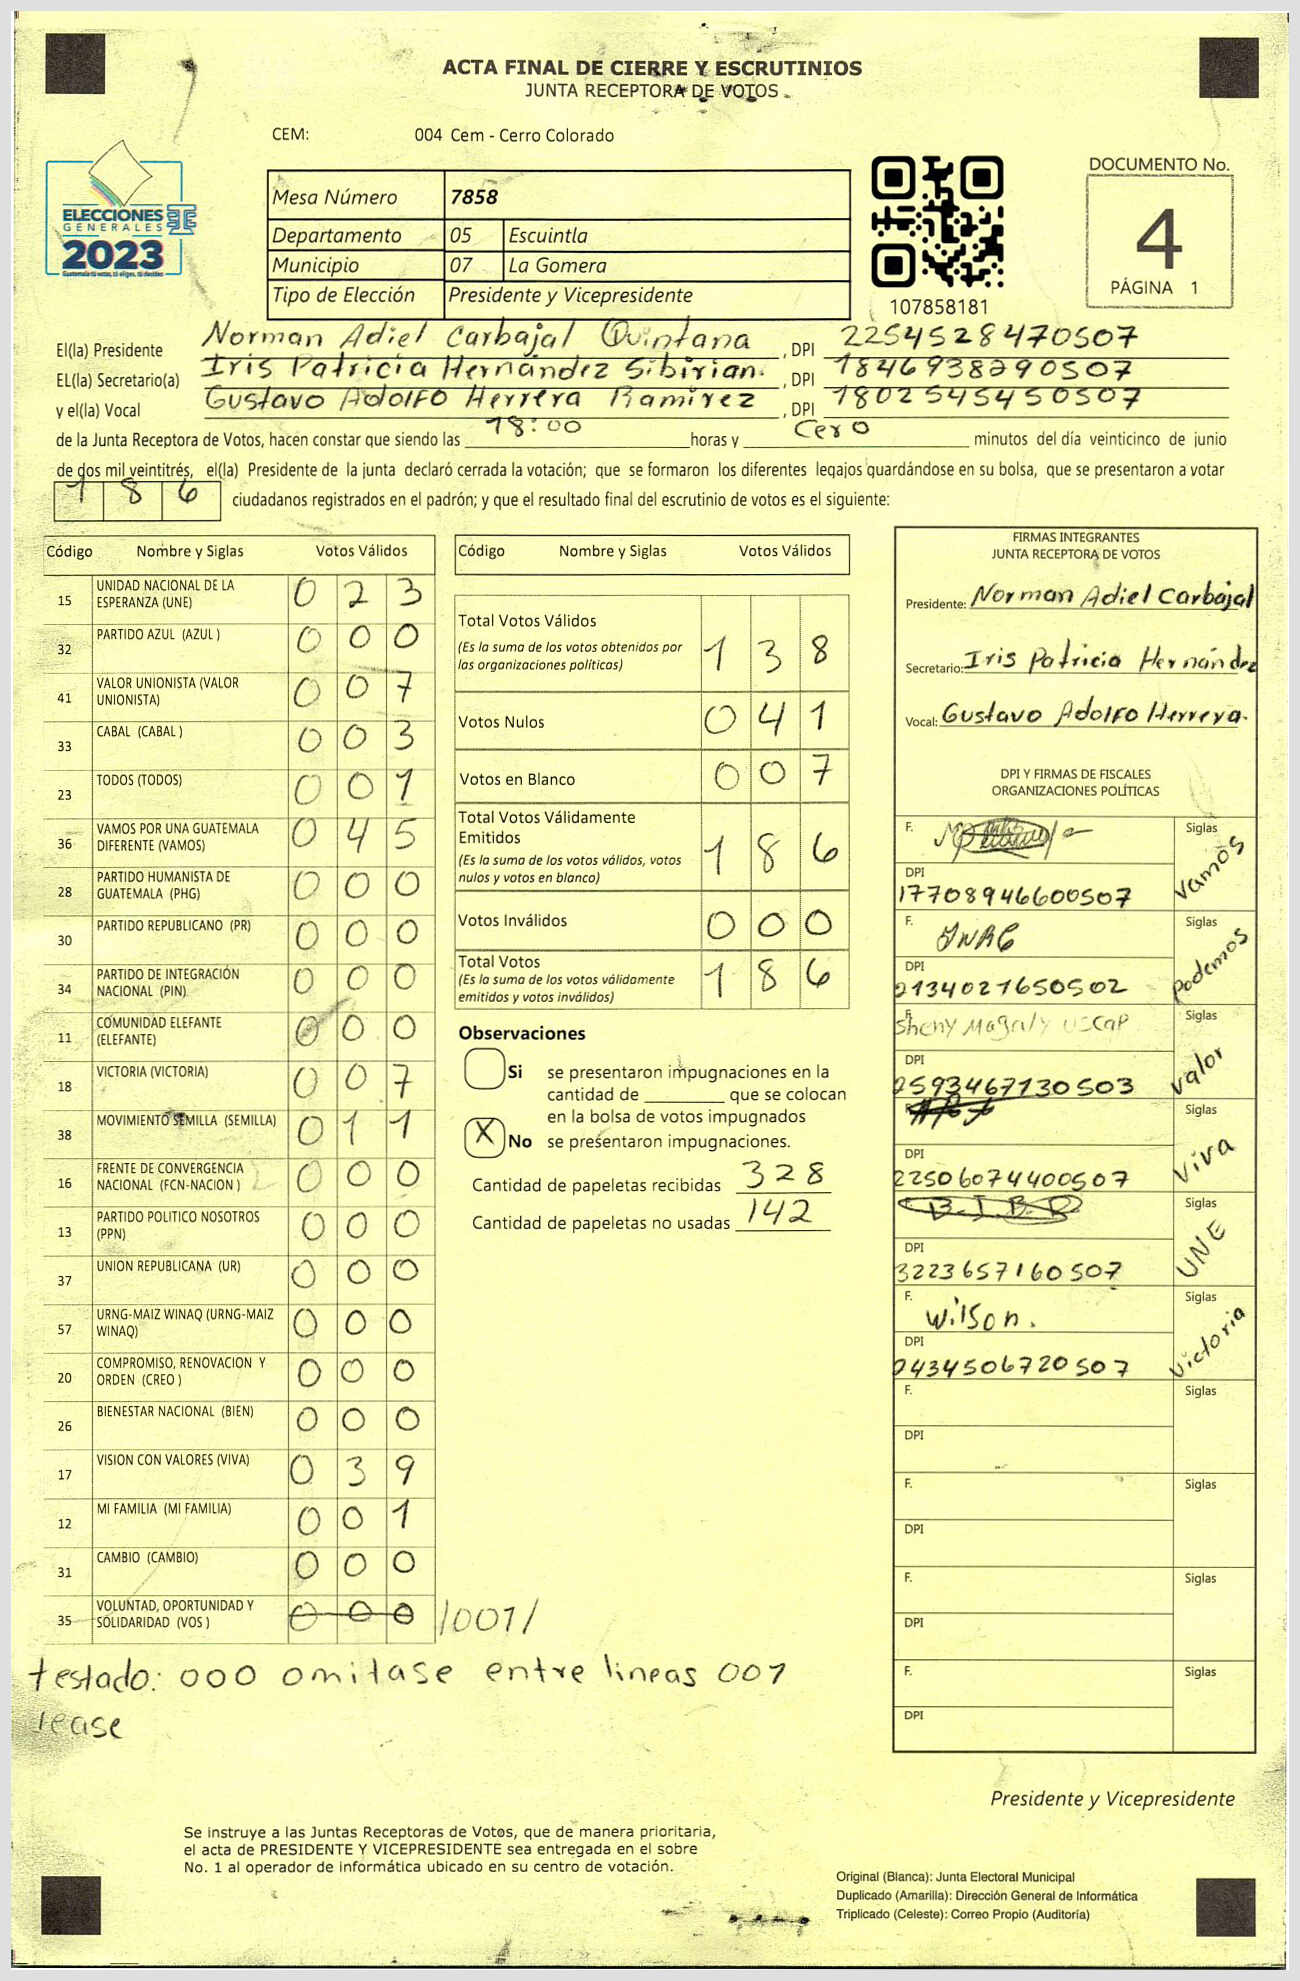 ACTA FINAL DE CIERRE Y ESCRUTINIOS
JUNTA RECEPTORA DE VOTOS
CEM: 004 Cem - Cerro Colorado
ELECCIONES
GENERALES
2023
Mesa Número 7858
Departamento 05 Escuintla
Municipio 07 La Gomera
Tipo de Elección Presidente y Vicepresidente
107858181
DOCUMENTO No.
4
PÁGINA 1
El(la) Presidente Norman Adiel Carbajal Quintana , DPI 2254528470507
EL(la) Secretario(a) Iris Patricia Hernández Sibirian. , DPI 1846938290507
y el(la) Vocal Gustavo Adolfo Herrera Ramirez , DPI 1802545450507
de la Junta Receptora de Votos, hacen constar que siendo las 18:00 horas y Cero minutos del día veinticinco de junio
de dos mil veintitrés, el(la) Presidente de la junta declaró cerrada la votación; que se formaron los diferentes legajos guardándose en su bolsa, que se presentaron a votar
1 8 6 ciudadanos registrados en el padrón; y que el resultado final del escrutinio de votos es el siguiente:
Código Nombre y Siglas Votos Válidos
15 UNIDAD NACIONAL DE LA ESPERANZA (UNE) 0 2 3
32 PARTIDO AZUL (AZUL ) 0 0 0
41 VALOR UNIONISTA (VALOR UNIONISTA) 0 0 7
33 CABAL (CABAL ) 0 0 3
23 TODOS (TODOS) 0 0 1
36 VAMOS POR UNA GUATEMALA DIFERENTE (VAMOS) 0 4 5
28 PARTIDO HUMANISTA DE GUATEMALA (PHG) 0 0 0
30 PARTIDO REPUBLICANO (PR) 0 0 0
34 PARTIDO DE INTEGRACIÓN NACIONAL (PIN) 0 0 0
11 COMUNIDAD ELEFANTE (ELEFANTE) 0 0 0
18 VICTORIA (VICTORIA) 0 0 7
38 MOVIMIENTO SEMILLA (SEMILLA) 0 1 1
16 FRENTE DE CONVERGENCIA NACIONAL (FCN-NACION ) 0 0 0
13 PARTIDO POLITICO NOSOTROS (PPN) 0 0 0
37 UNION REPUBLICANA (UR) 0 0 0
57 URNG-MAIZ WINAQ (URNG-MAIZ WINAQ) 0 0 0
20 COMPROMISO, RENOVACION Y ORDEN (CREO ) 0 0 0
26 BIENESTAR NACIONAL (BIEN) 0 0 0
17 VISION CON VALORES (VIVA) 0 3 9
12 MI FAMILIA (MI FAMILIA) 0 0 1
31 CAMBIO (CAMBIO) 0 0 0
35 VOLUNTAD, OPORTUNIDAD Y SOLIDARIDAD (VOS ) 0 0 0 /001/
testado: 000 omitase entre lineas 001
lease
Código Nombre y Siglas Votos Válidos
Total Votos Válidos
(Es la suma de los votos obtenidos por
las organizaciones políticas) 1 3 8
Votos Nulos 0 4 1
Votos en Blanco 0 0 7
Total Votos Válidamente
Emitidos
(Es la suma de los votos válidos, votos
nulos y votos en blanco) 1 8 6
Votos Inválidos 0 0 0
Total Votos
(Es la suma de los votos válidamente
emitidos y votos inválidos) 1 8 6
Observaciones
Si se presentaron impugnaciones en la
cantidad de ________ que se colocan
en la bolsa de votos impugnados
X No se presentaron impugnaciones.
Cantidad de papeletas recibidas 328
Cantidad de papeletas no usadas 142
FIRMAS INTEGRANTES
JUNTA RECEPTORA DE VOTOS
Presidente: Norman Adiel Carbajal
Secretario: Iris Patricia Hernández
Vocal: Gustavo Adolfo Herrera.
DPI Y FIRMAS DE FISCALES
ORGANIZACIONES POLÍTICAS
F. Siglas Vamos
DPI 17708946600507
F. Siglas Podemos
DPI 2134021650502
F. Sheny Magaly Siglas Valor
DPI 2593467130503
F. Siglas Viva
DPI 22506074400507
F. B.J.B.R Siglas UNE
DPI 3223657160507
F. Wilson. Siglas Victoria
DPI 2434506720507
F. Siglas
DPI
F. Siglas
DPI
F. Siglas
DPI
F. Siglas
DPI
Presidente y Vicepresidente
Se instruye a las Juntas Receptoras de Votos, que de manera prioritaria,
el acta de PRESIDENTE Y VICEPRESIDENTE sea entregada en el sobre
No. 1 al operador de informática ubicado en su centro de votación.
Original (Blanca): Junta Electoral Municipal
Duplicado (Amarilla): Dirección General de Informática
Triplicado (Celeste): Correo Propio (Auditoría)